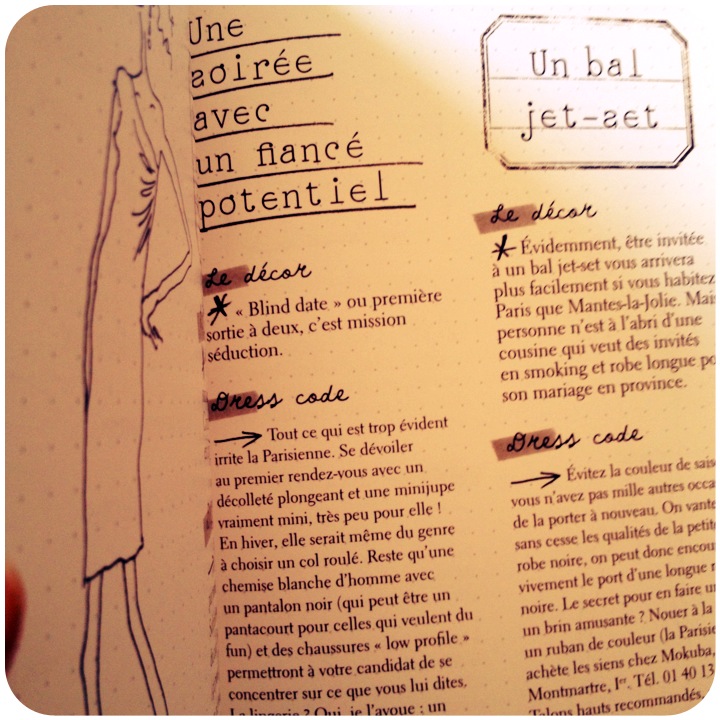 Une
soirée
avec
un fiancé
potentiel
Le décor
* « Blind date » ou première
sortie à deux, c'est mission
séduction.
Dress code
→ Tout ce qui est trop évident
irrite la Parisienne. Se dévoiler
au premier rendez-vous avec un
décolleté plongeant et une minijupe
vraiment mini, très peu pour elle !
En hiver, elle serait même du genre
à choisir un col roulé. Reste qu'une
chemise blanche d'homme avec
un pantalon noir (qui peut être un
pantacourt pour celles qui veulent du
fun) et des chaussures « low profile »
permettront à votre candidat de se
concentrer sur ce que vous lui dites.
La lingerie ? Oui, je l'avoue : un
Un bal
jet-set
Le décor
* Évidemment, être invitée
à un bal jet-set vous arrivera
plus facilement si vous habitez
Paris que Mantes-la-Jolie. Mai
personne n'est à l'abri d'une
cousine qui veut des invités
en smoking et robe longue po
son mariage en province.
Dress code
→ Évitez la couleur de sais
vous n'avez pas mille autres occa
de la porter à nouveau. On vante
sans cesse les qualités de la petit
robe noire, on peut donc encou
vivement le port d'une longue r
noire. Le secret pour en faire u
un brin amusante ? Nouer à la
un ruban de couleur (la Parisie
achète les siens chez Mokuba,
Montmartre, Iᵉʳ. Tél. 01 40 13
Talons hauts recommandés.